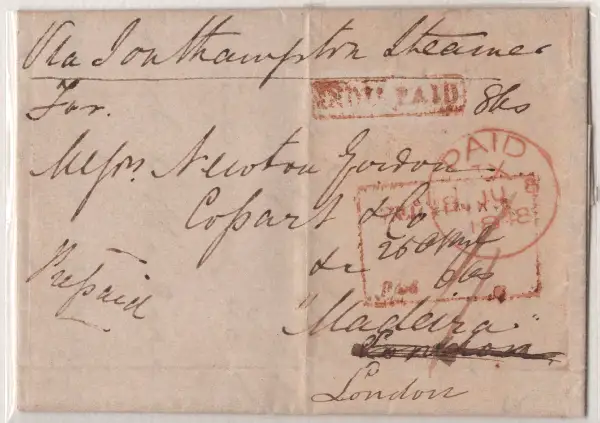 Via Southampton Steamer
For.
INDIA PAID
8as
Messrs. Newton Gordon
Cossart & Co
PAID
JU
1848
&c
25
8as
Prepaid
"Madeira"
London
London